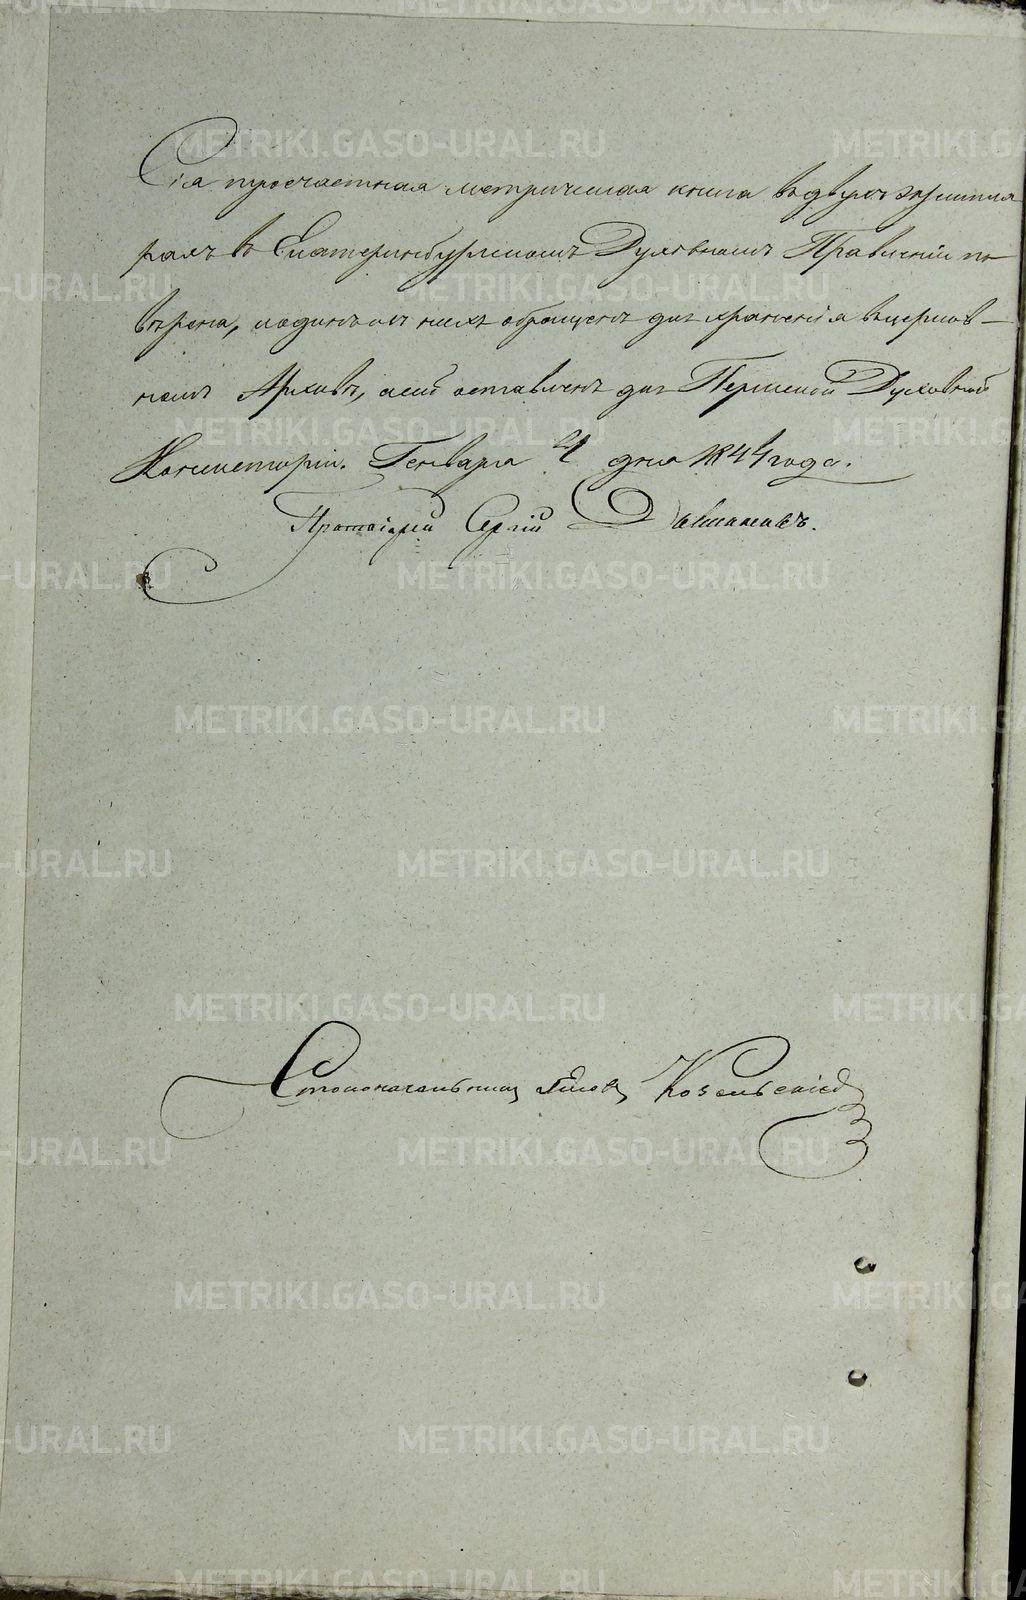 Сія трочастная метрическая книга въ двухъ экземпля
рахъ въ Екатеринбургскомъ Духовномъ Правленіи по
вѣрена, и одинъ изъ нихъ обращенъ для храненія въ церков-
номъ Архивѣ, а сей оставленъ для Пермской Духовной
Консисторіи. Генваря 4 дня 1844 года.
Протоіерей Сергій
Столоначальникъ Козельскій
METRIKI.GASO-URAL.RU